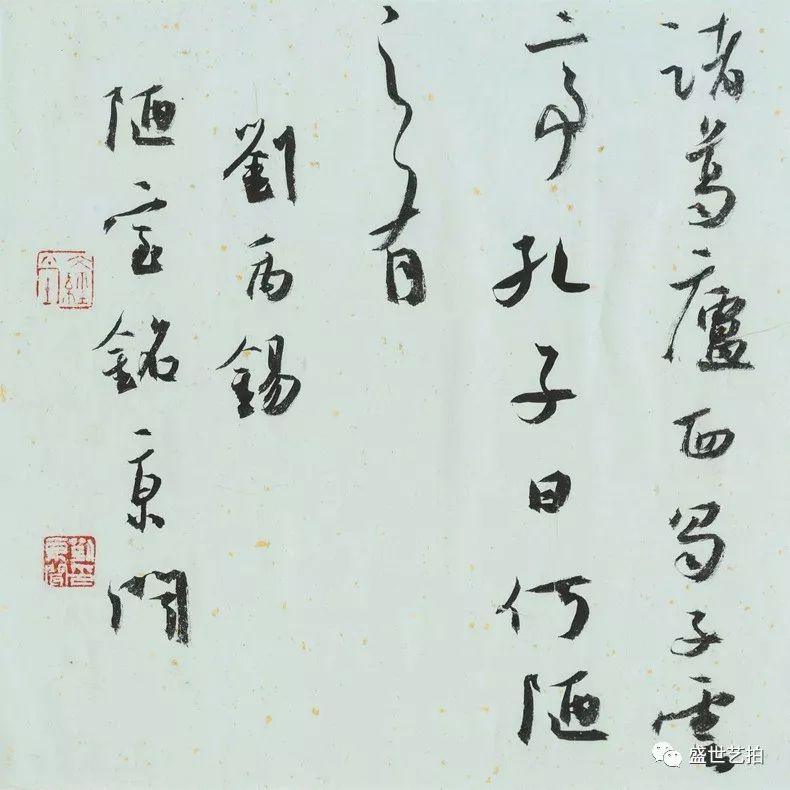 諸葛廬西蜀子雲
亭孔子曰何陋
之有
劉禹錫
陋室銘京聞
盛世艺拍